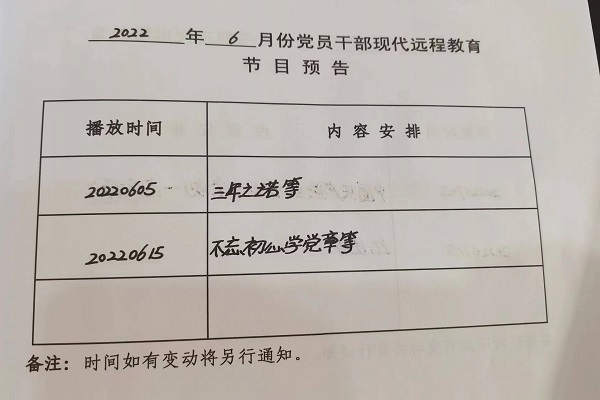 2022 年 6 月份党员干部现代远程教育
节目预告
播放时间 内容安排
20220605 三年之诺等
20220615 不忘初心学党章等
备注：时间如有变动将另行通知。